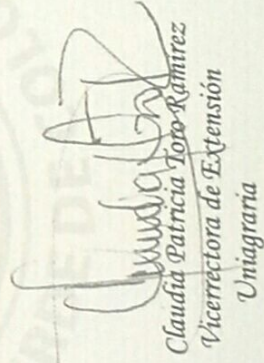 Claudia Patricia Toro Ramirez
Vicerrectora de Extensión
Uniagraria